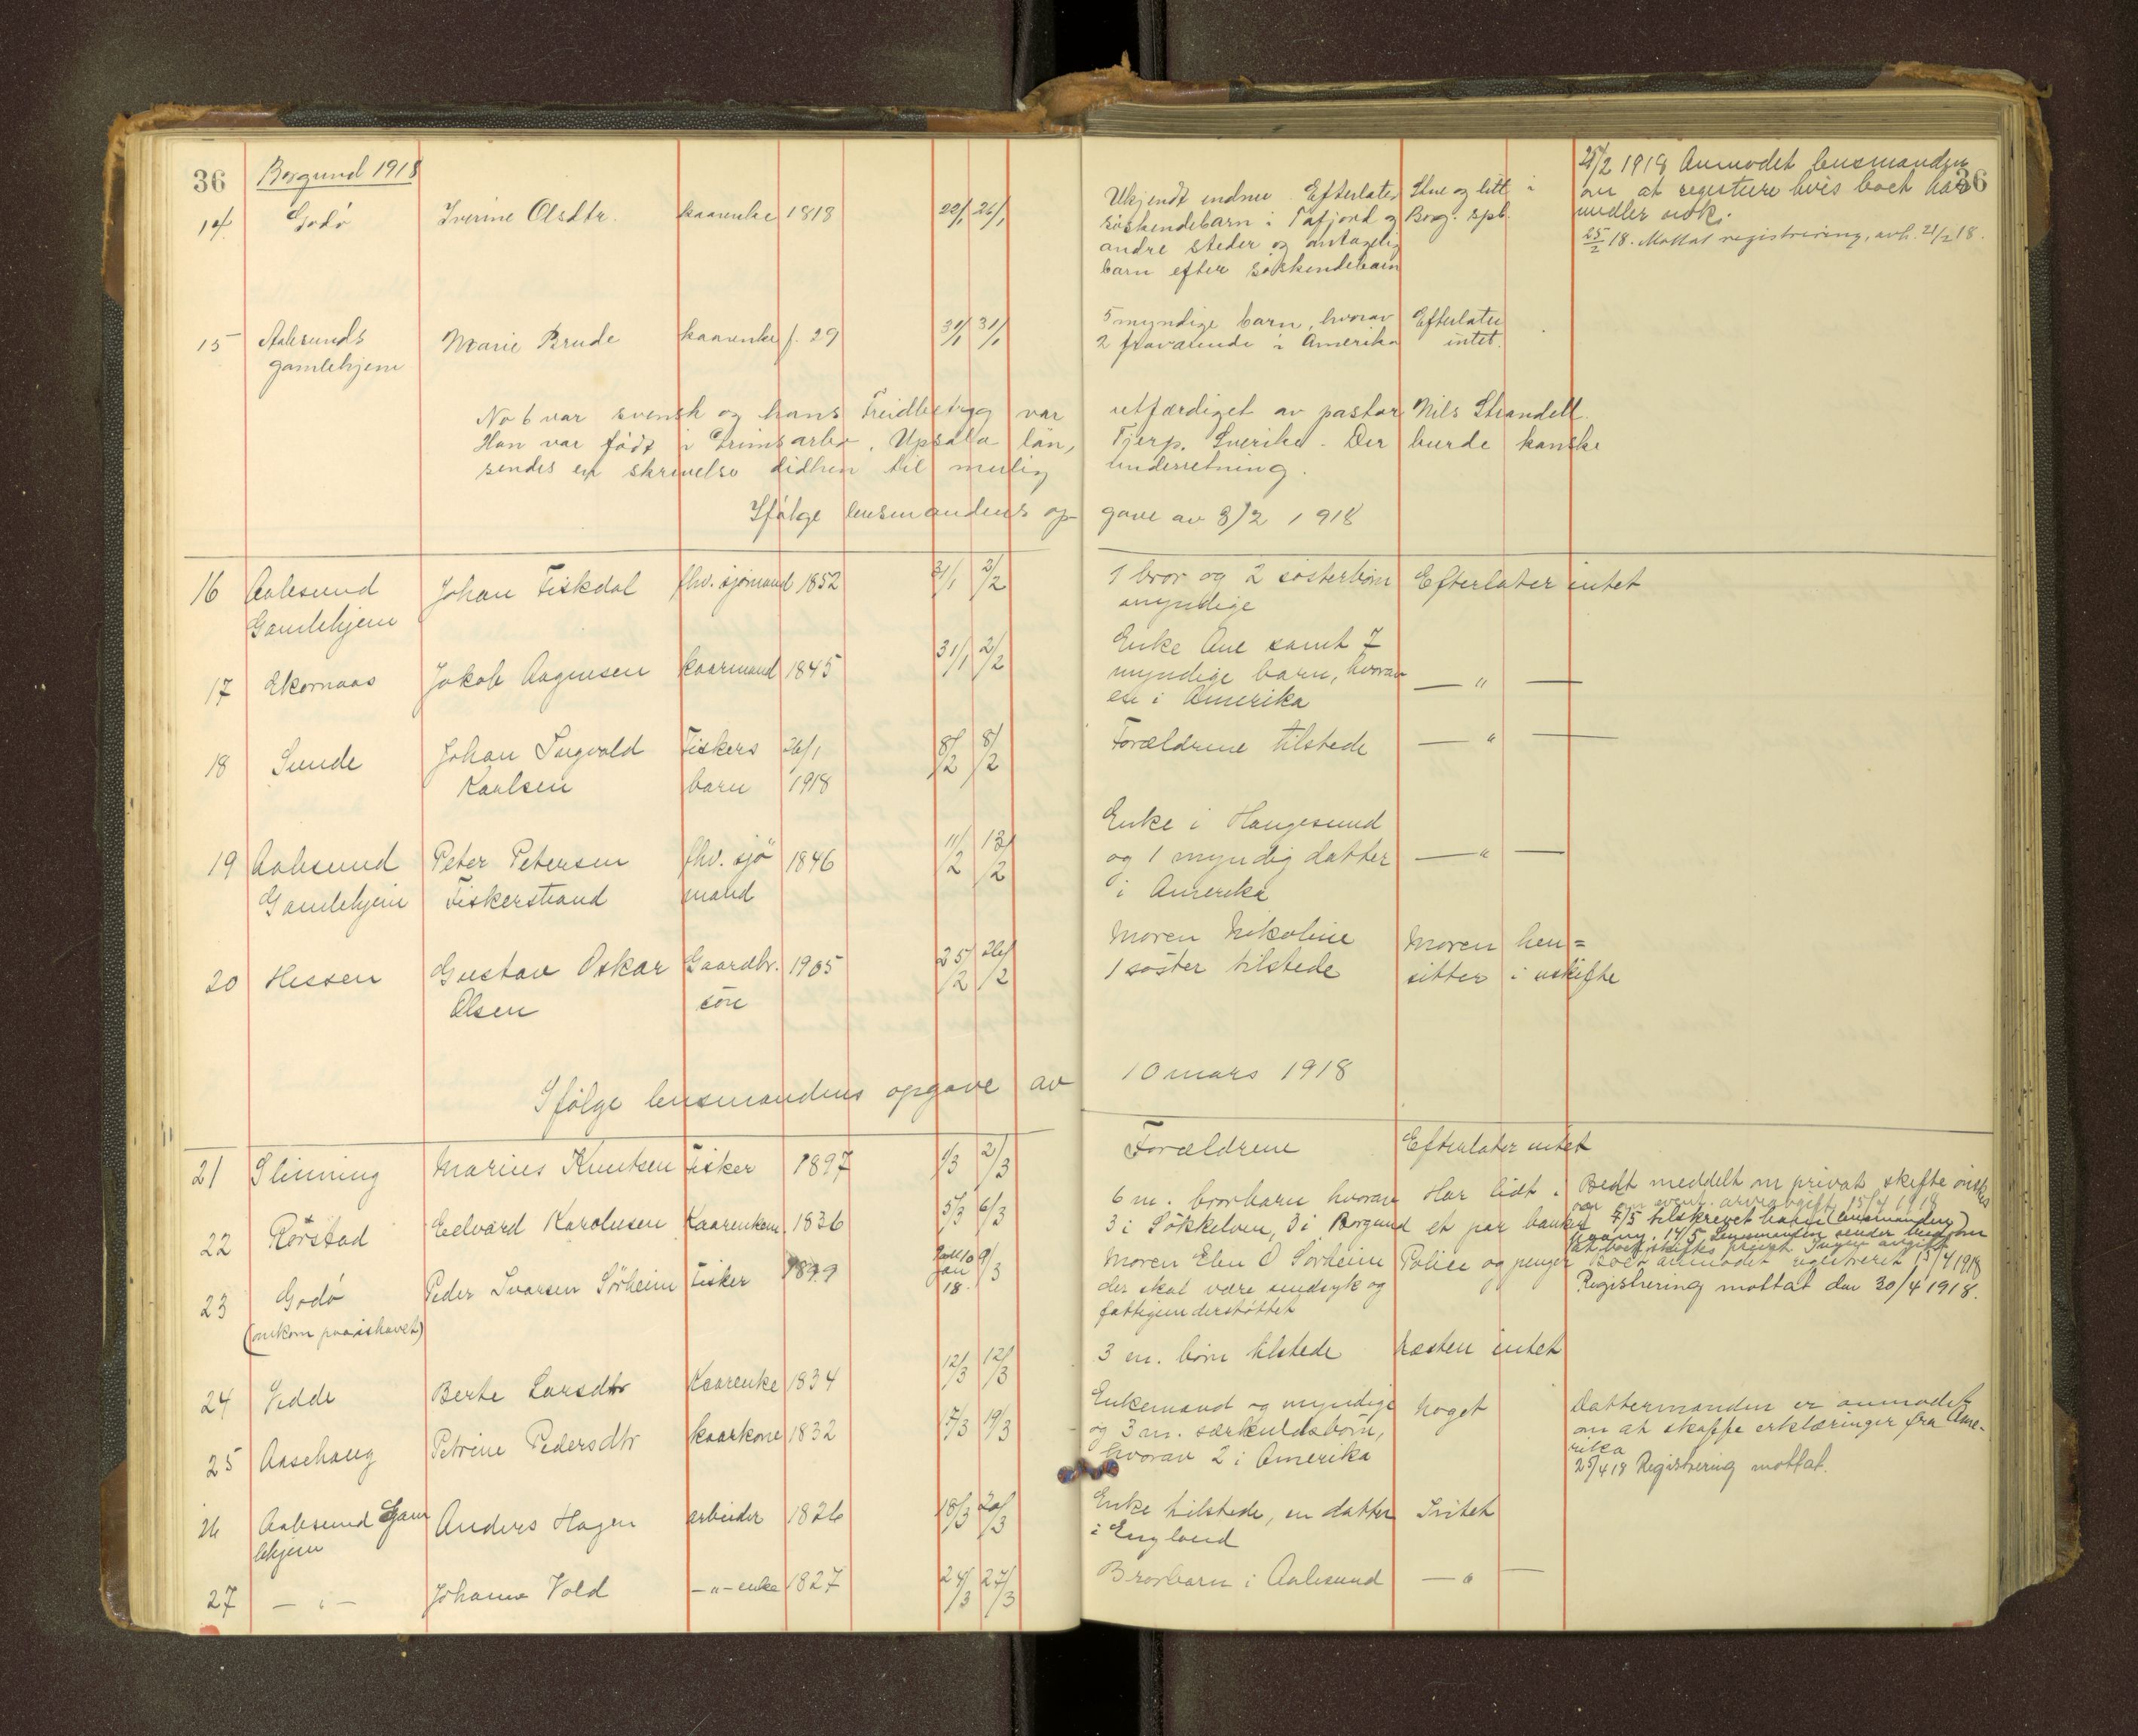 36 Borgund 1918
14 Godø Iverine Olsdtr. kaarenke 1818 22/1 26/1 Ukjendt endnu. Efterlater Stue og litt i 25/2 1918 Anmodet lensmanden 36
søskendebarn i Tafjord og Borg. spb. om at registrere hvis boet har
andre steder og antagelig midler nok.
barn efter søskendebarn 25/2 18. Mottat registrering, avh. 21/2 18.
15 Aalesunds Marie Brude kaarenke f. 29 31/1 31/1 5 myndige barn, hvorav Efterlater
gamlehjem 2 fraværende i Amerika intet.
No 6 var svensk og hans Freidbetyg var utfærdiget av pastor Nils Strandell.
Han var født i arbo, Upsala län, Tjerp, Sverike. Der burde kanske
sendes en skrivelse didhen til mulig underretning.
Ifølge lensmandens opgave av 8/2 1918
16 Aalesund Johan Fiskdal fhv. sjømand 1852 31/1 2/2 1 bror og 2 søsterbørn Efterlater intet
Gamlehjem myndige
17 Ekornaas Jakob Aagesen kaarmand 1845 31/1 2/2 Enke Ane samt 7
myndige barn, hvorav — " —
en i Amerika
18 Sunde Johan Ingvald Fiskers 26/1 8/2 8/2 Forældrene tilstede — " —
Karlsen barn 1918
19 Aalesund Peter Petersen fhv. sjø 1846 11/2 13/2 Enke i Haugesund
Gamlehjem Fiskerstrand mand og 1 myndig datter — " —
i Amerika
20 Hessen Gustav Oskar Gaardbr. 1905 25/2 26/2 Moren Nikoline Moren hen=
Olsen søn 1 søster tilstede sitter i uskifte
Ifølge lensmandens opgave av 10 mars 1918
21 Slinning Marius Knutsen Fisker 1897 1/3 2/3 Forældrene Efterlater intet
22 Rørstad Edvard Karolusen Kaarenkem. 1836 5/3 6/3 6 m. brorbarn hvorav Har lidt i Bedt meddelt om privat skifte ønskes
3 i Søkkelven, 3 i Borgund et par banker og om event. arveavgift 15/4 1918
7/5 tilskrevet ham (lensmanden)
14/5 Lensmanden sender
at boet skiftes privat. Ingen avgift
23 Godø Peder Ivarsen Sørheim Fisker 1899 jan 18. 9/3 Moren Elen O Sørheim Police og penger Boet anmodet registreret 15/4 1918
(omkom paa ishavet) der skal være sindsyk og Registrering mottat den 30/4 1918.
fattigunderstøttet
24 Vedde Berte Larsdtr Kaarenke 1834 12/3 12/3 3 m. børn tilstede Næsten intet
25 Aasehaug Petrine Pedersdtr kaarkone 1832 17/3 19/3 Enkemand og myndige Noget Dattermanden er anmodet
og 3 m. særkuldsbørn, om at skaffe erklæringer fra Ame-
hvorav 2 i Amerika rika
25/4 18 Registrering mottat.
26 Aalesund Gam Anders Hagen arbeider 1826 18/3 20/3 Enke tilstede, en datter Intet
lehjem i England
27 — " — Johanne Vold — " — enke 1827 24/3 27/3 Brorbarn i Aalesund — " —